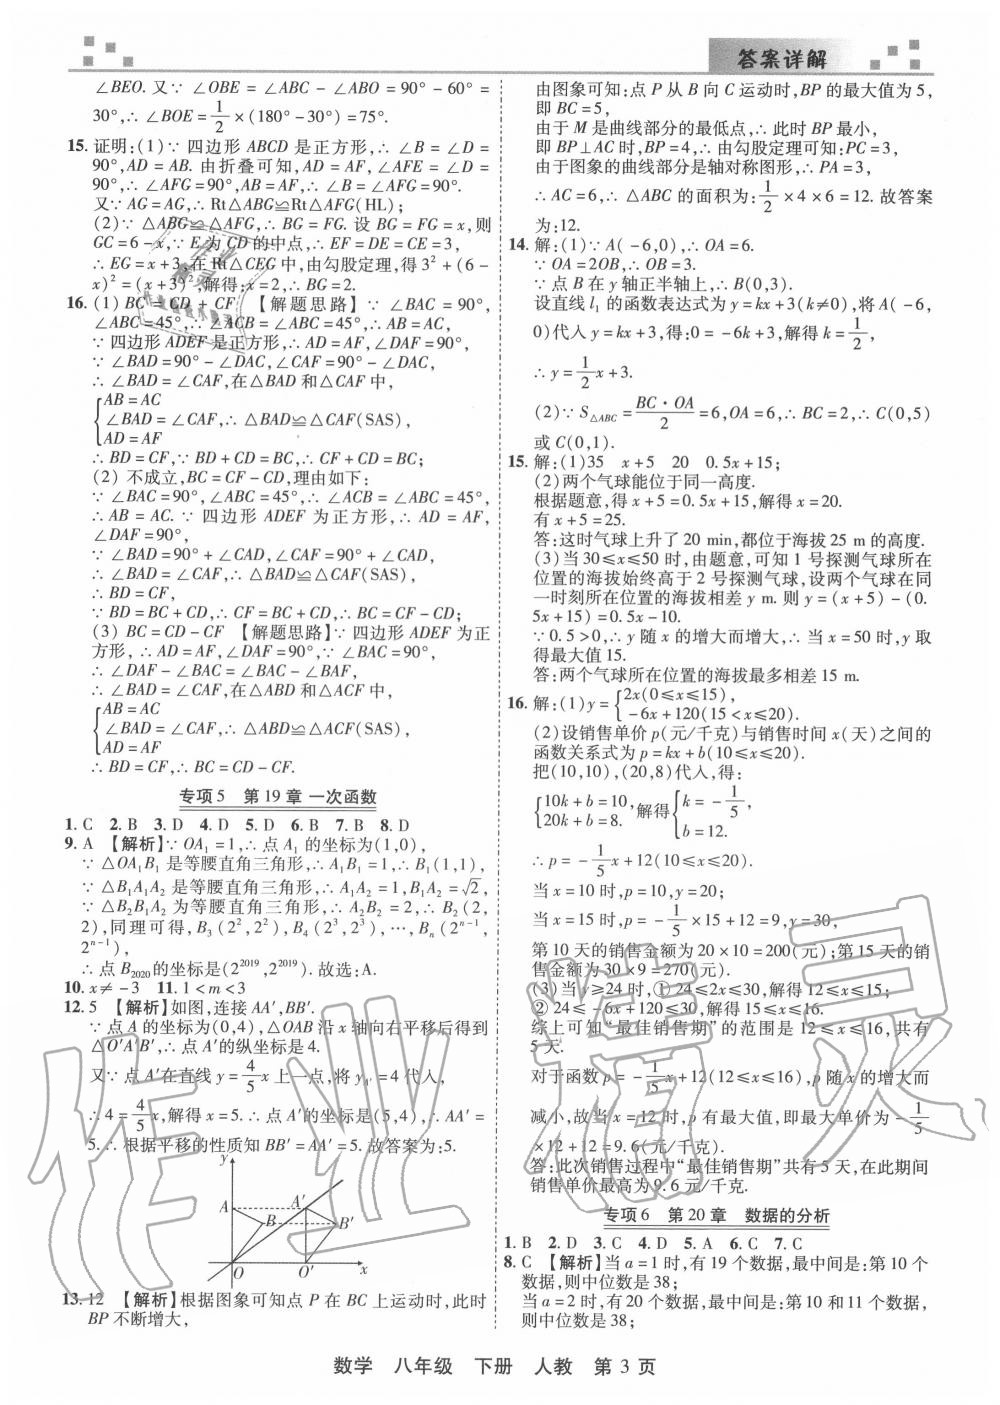 答案详解
∠BEO. 又∵ ∠OBE = ∠ABC - ∠ABO = 90° - 60° =
30°,∴ ∠BOE = 1/2 ×(180° -30°) =75°.
15. 证明:(1)∵ 四边形 ABCD 是正方形,∴ ∠B = ∠D =
90°,AD = AB. 由折叠可知,AD = AF,∠AFE = ∠D =
90°,∴ ∠AFG =90°,AB = AF,∴ ∠B = ∠AFG =90°.
又∵ AG = AG,∴ Rt△ABG≌Rt△AFG(HL);
(2)∵ △ABG≌△AFG,∴ BG = FG. 设 BG = FG = x,则
GC =6 - x,∵ E 为 CD 的中点,∴ EF = DE = CE =3,
∴ EG = x +3,在 Rt△CEG 中,由勾股定理,得 3² +(6 -
x)² =(x +3)²,解得:x =2,∴ BG =2.
16. (1) BC = CD + CF 【解题思路】∵ ∠BAC = 90°,
∠ABC =45°,∴ ∠ACB = ∠ABC =45°,∴ AB = AC,
∵ 四边形 ADEF 是正方形,∴ AD = AF,∠DAF =90°,
∵ ∠BAD =90° - ∠DAC,∠CAF =90° - ∠DAC,
∴ ∠BAD = ∠CAF,在△BAD 和△CAF 中,
{AB = AC
∠BAD = ∠CAF,∴ △BAD≌△CAF(SAS),
AD = AF
∴ BD = CF,∵ BD + CD = BC,∴ CF + CD = BC;
(2) 不成立,BC = CF - CD,理由如下:
∵ ∠BAC =90°,∠ABC =45°,∴ ∠ACB = ∠ABC =45°,
∴ AB = AC. ∵ 四边形 ADEF 为正方形,∴ AD = AF,
∠DAF =90°,
∵ ∠BAD =90° + ∠CAD,∠CAF =90° + ∠CAD,
∴ ∠BAD = ∠CAF,∴ △BAD≌△CAF(SAS),
∴ BD = CF,
∵ BD = BC + CD,∴ CF = BC + CD,∴ BC = CF - CD;
(3) BC = CD - CF 【解题思路】∵ 四边形 ADEF 为正
方形,∴ AD = AF,∠DAF =90°,∵ ∠BAC =90°,
∴ ∠DAF - ∠BAC = ∠BAC - ∠BAF,
∴ ∠BAD = ∠CAF,在△ABD 和△ACF 中,
{AB = AC
∠BAD = ∠CAF,∴ △ABD≌△ACF(SAS),
AD = AF
∴ BD = CF,∴ BC = CD - CF.
专项5 第19章 一次函数
1. C 2. B 3. D 4. D 5. D 6. B 7. B 8. D
9. A 【解析】∵ OA₁ =1,∴ 点 A₁ 的坐标为(1,0),
∵ △OA₁B₁ 是等腰直角三角形,∴ A₁B₁ =1,∴ B₁(1,1),
∵ △B₁A₁A₂ 是等腰直角三角形,∴ A₁A₂ =1,B₁A₂ =√2,
∵ △B₂B₁A₂ 为等腰直角三角形,∴ A₂B₂ =2,∴ B₂(2,
2),同理可得,B₃(2²,2²),B₄(2³,2³),…,Bₙ(2ⁿ⁻¹,
2ⁿ⁻¹),
∴ 点 B₂₀₂₀ 的坐标是(2²⁰¹⁹,2²⁰¹⁹). 故选:A.
10. x≠ -3 11. 1 < m <3
12. 5 【解析】如图,连接 AA′,BB′.
∵ 点 A 的坐标为(0,4),△OAB 沿 x 轴向右平移后得到
△O′A′B′,∴ 点 A′的纵坐标是4.
又∵ 点 A′在直线 y = 4/5 x 上一点,将 yA′ =4 代入,
∴ 4 = 4/5 x,解得 x =5. ∴ 点 A′的坐标是(5,4),∴ AA′ =
5. ∴ 根据平移的性质知 BB′ = AA′ =5. 故答案为:5.
y
A A′
B B′
O O′ x
13. 12 【解析】根据图象可知点 P 在 BC 上运动时,此时
BP 不断增大,
由图象可知:点 P 从 B 向 C 运动时,BP 的最大值为 5,
即 BC =5,
由于 M 是曲线部分的最低点,∴ 此时 BP 最小,
即 BP⊥AC 时,BP =4,∴ 由勾股定理可知:PC =3,
由于图象的曲线部分是轴对称图形,∴ PA =3,
∴ AC =6,∴ △ABC 的面积为:1/2 ×4 ×6 =12. 故答案
为:12.
14. 解:(1)∵ A( -6,0),∴ OA =6.
∵ OA =2OB,∴ OB =3.
∵ 点 B 在 y 轴正半轴上,∴ B(0,3).
设直线 l₁ 的函数表达式为 y = kx +3(k≠0),将 A( -6,
0)代入 y = kx +3,得:0 = -6k +3,解得 k = 1/2,
∴ y = 1/2 x +3.
(2)∵ S△ABC = BC·OA/2 =6,OA =6,∴ BC =2,∴ C(0,5)
或 C(0,1).
15. 解:(1)35 x +5 20 0.5x +15;
(2)两个气球能位于同一高度.
根据题意,得 x +5 =0.5x +15,解得 x =20.
有 x +5 =25.
答:这时气球上升了 20 min,都位于海拔 25 m 的高度.
(3)当 30≤x≤50 时,由题意,可知 1 号探测气球所在
位置的海拔始终高于 2 号探测气球,设两个气球在同
一时刻所在位置的海拔相差 y m. 则 y =(x +5) -(0.
5x +15) =0.5x -10.
∵ 0.5 >0,∴ y 随 x 的增大而增大,∴ 当 x =50 时,y 取
得最大值 15.
答:两个气球所在位置的海拔最多相差 15 m.
16. 解:(1)y = {2x(0≤x≤15),
-6x +120(15 < x≤20).
(2)设销售单价 p(元/千克)与销售时间 x(天)之间的
函数关系式为 p = kx + b(10≤x≤20).
把(10,10),(20,8)代入,得:
{10k + b =10, 20k + b =8. 解得 {k = -1/5, b =12.
∴ p = -1/5 x +12(10≤x≤20).
当 x =10 时,p =10,y =20;
当 x =15 时,p = -1/5 ×15 +12 =9,y =30,
第 10 天的销售金额为 20 ×10 =200(元);第 15 天的销
售金额为 30 ×9 =270(元).
(3)当 y≥24 时,①24≤2x≤30,解得 12≤x≤15;
②24≤ -6x +120≤30,解得 15≤x≤16.
综上可知“最佳销售期”的范围是 12≤x≤16,共有
5 天.
对于函数 p = -1/5 x +12(12≤x≤16),p 随 x 的增大而
减小,故当 x =12 时,p 有最大值,即最大单价为 -1/5
×12 +12 =9.6(元/千克).
答:此次销售过程中“最佳销售期”共有 5 天,在此期间
销售单价最高为 9.6 元/千克.
专项6 第20章 数据的分析
1. B 2. D 3. C 4. D 5. A 6. C 7. C
8. C 【解析】当 a =1 时,有 19 个数据,最中间是:第 10 个
数据,则中位数是 38;
当 a =2 时,有 20 个数据,最中间是:第 10 和 11 个数据,
则中位数是 38;
数学 八年级 下册 人教 第 3 页
作业精灵